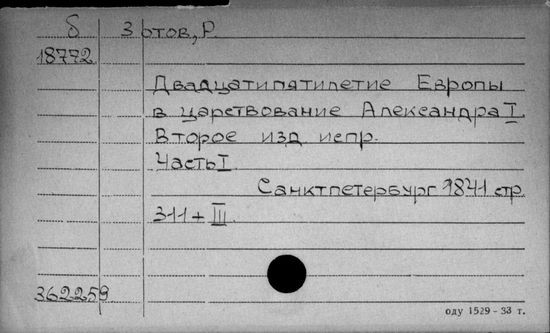 б Зотов, Р.
18772
Двадцатипятилетие Европы
в царствование Александра I
Второе изд испр.
Часть I
Санктпетербург 1841 стр
311 + III
362259
оду 1529 - 33 т.